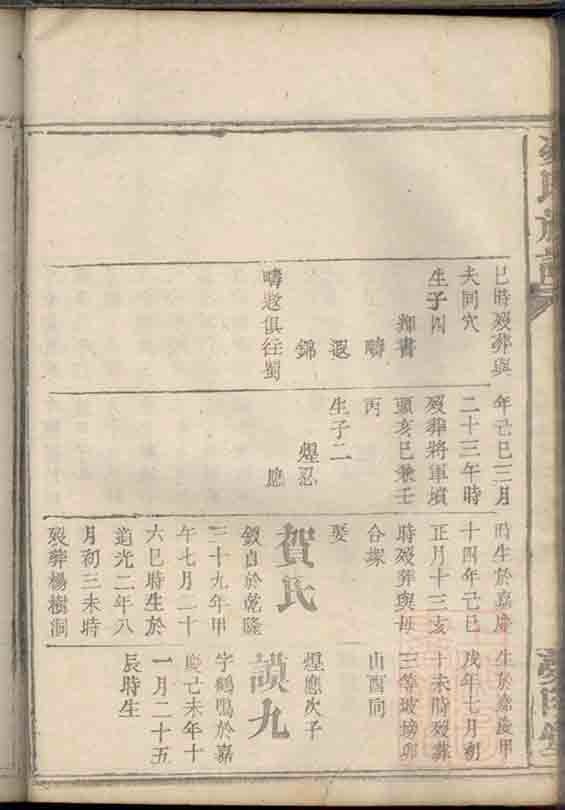 巳時歿葬與
夫同穴
生子四
輝書
疇
遐
錦
疇遐俱往蜀
年己巳三月
二十三午時
歿葬將軍墳
頭亥巳兼壬
丙
生子二
煋忍
應
時生於嘉慶
十四年己巳
正月十三亥
時歿葬與母
合塚
娶
賀氏
毀自於乾隆
三十九年甲
午七月二十
六巳時生於
道光二年八
月初三未時
歿葬楊樹洞
生於嘉慶甲
戌年七月初
十未時歿葬
三等坡揚卯
山酉向
煋應次子
謨九
字鶴鳴於嘉
慶己未年十
一月二十五
辰時生